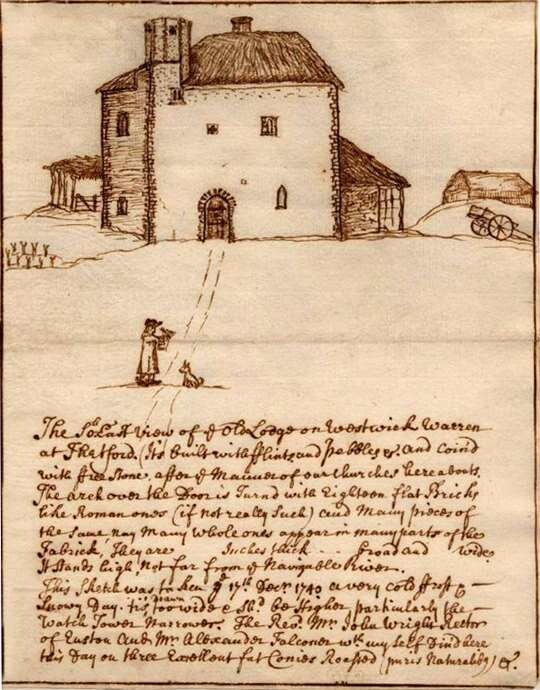 The So. East View of ye Old Lodge on Westwick Warren
at Thetford. (Its built with fflints and pebbles &. And Coin'd
with ffree Stone, after ye Manner of our Churches hereabouts.
The arch over the Door is Turnd with Eighteen flat Bricks
like Roman ones (if not really Such) and Many pieces of
the same nay Many whole ones appear in many parts of the
Fabrick, They are Inches thick .. Broad and wide
It stands high, Not far from ye Navigable River.
This Sketch was taken ye 17th. Decr. 1740 a very cold ffrost &
Snowy Day. tis drawn too wide & Shd. be Higher, particularly the
Watch Tower Narrower. The Revd. Mr. John Wright Rector
of Euston And Mr. Alexander Falconer wth. my Self Din'd here
this Day on three Excellent fat Conies Roasted (puris Naturalibg) &c.